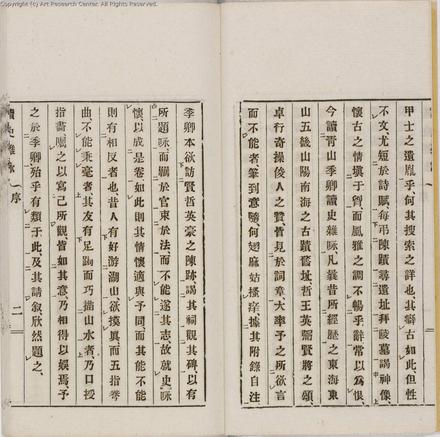 Copyright (c) Art Research Center. All Rights Reserved.
甲士之遺胤乎、何其搜索之詳也其癖古如此、但性
不文、尤短於詩賦、每弔陳蹟尋遺址拜陵墓謁神像、
懷古之情塡于胷而風雅之調不暢乎辭常以為恨、
今讀靑山季卿讀史雜咏凡曩昔所經歷之東海東
山五畿山陽南海之古蹟舊址哲王英霸賢將之頌、
卓行奇操俊人之贊皆見於詞章大率予之所欲言
而不能者筆到意隨何翅麻姑搔痒據其附錄自注
季卿本欲訪賢哲英豪之陳跡謁其祠觀其碑以有
所題咏、而關於官束於法而不能遂其志故就史咏
懷以成是卷如此則其情懷適與予同、而其能不能
則有相反者也昔人有好游湖山欲摸眞而五指拳
曲不能秉毫者其友有足跼而巧描山水者乃口授
指畫囑之以寫己所觀皆如其意乃相得以娛焉予
之於季卿殆乎有類于此及其請敍欣然題之、
讀史雜咏 序 二